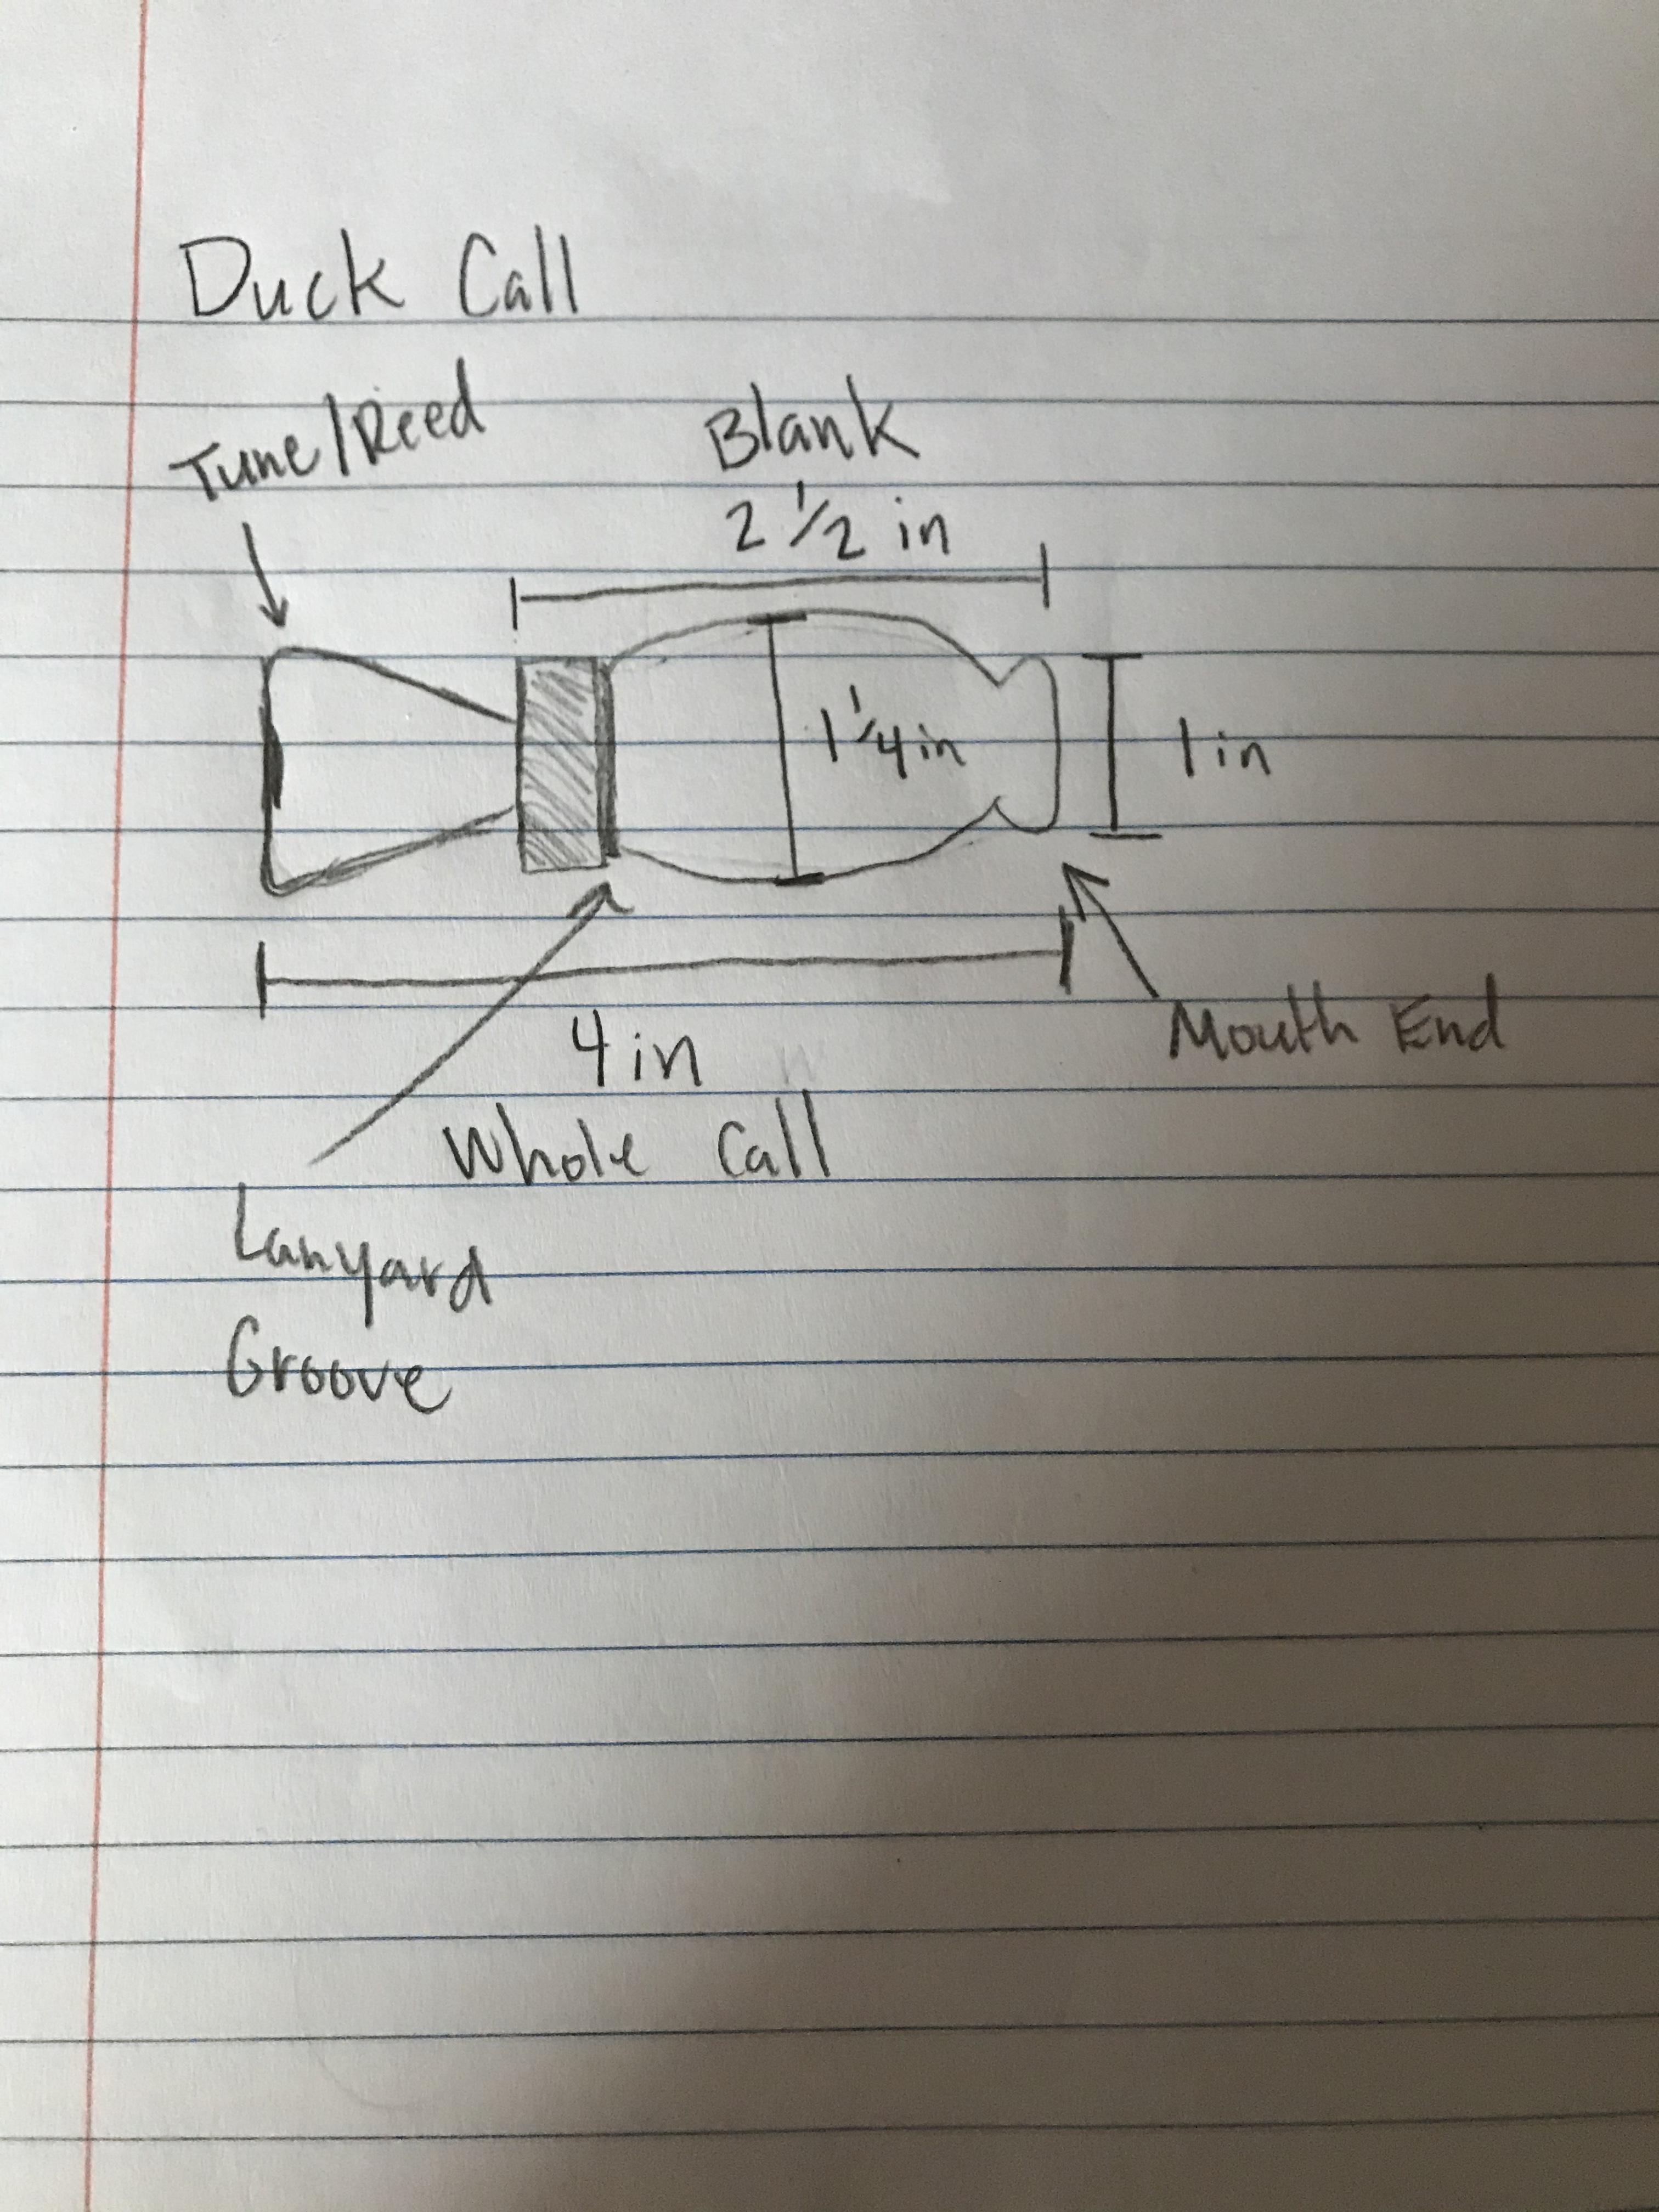 Duck Call
Tune/Reed
Blank
2 1/2 in
1 1/4 in
1 in
Mouth End
4 in
Whole Call
Lanyard
Groove